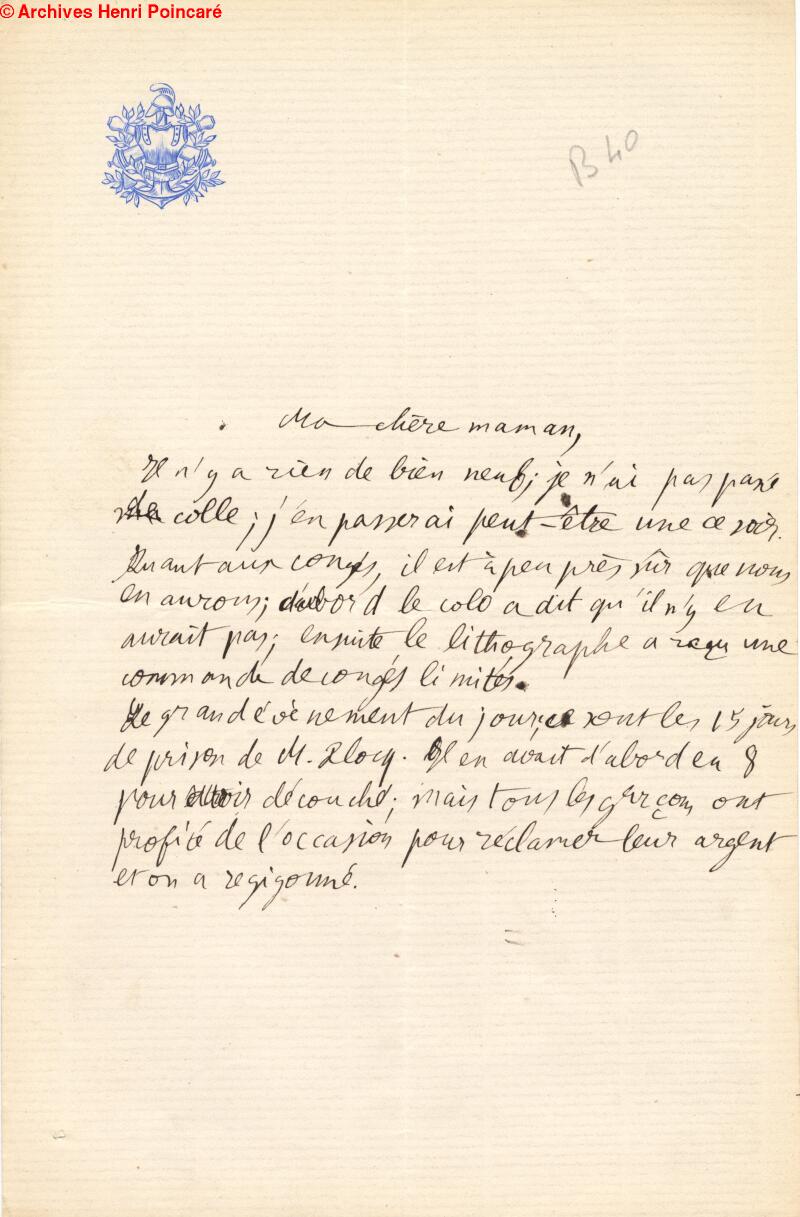 © Archives Henri Poincaré
B 40
Ma chère maman,
Il n'y a rien de bien neuf; je n'ai pas passé
de colle; j'en passerai peut-être une ce soir.
Quant aux congés, il est à peu près sûr que nous
en aurons; d'abord le colo a dit qu'il n'y en
aurait pas; ensuite le lithographe a reçu une
commande de congés limités.
Le grand évènement du jour, ce sont les 15 jours
de prison de M. Blocq. Il en avait d'abord eu 8
pour avoir découché; mais tous les garçons ont
profité de l'occasion pour réclamer leur argent
et on a regigonné.